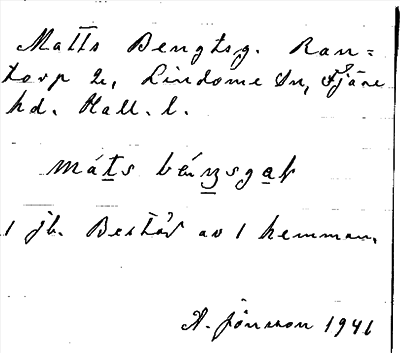 Matts Bengtsg. Ran=
torp 2, Lindome Sn, Fjäre
hd. Hall. l.
máts bǽnzsgaṯ
1 jb. Består av 1 hemman.
A. Jönsson 1941